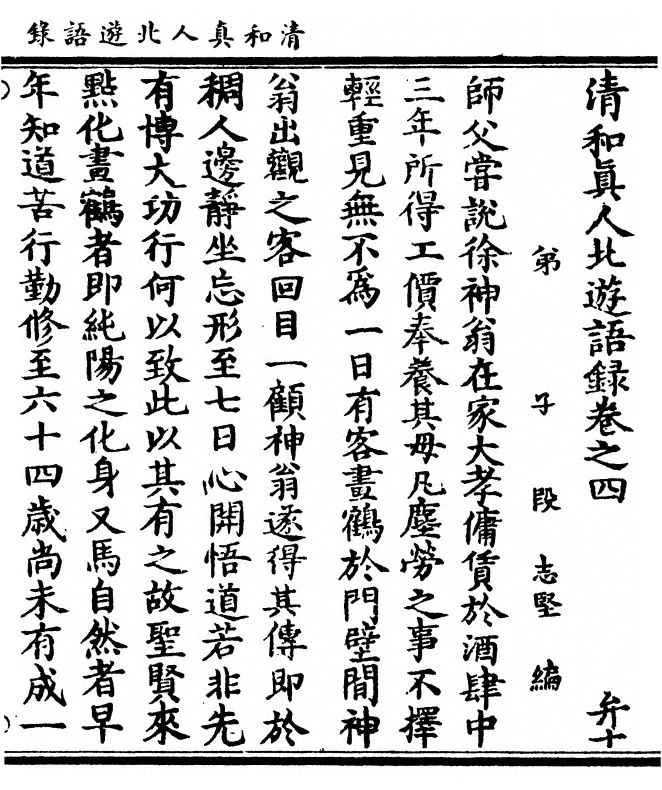 清和真人北遊語錄
清和真人北遊語錄卷之四
弁十
弟子段志堅編
師父嘗說徐神翁在家大孝傭賃於酒肆中
三年所得工價奉養其母凡塵勞之事不擇
輕重見無不為一日有客畫鶴於門壁間神
翁出觀之客回目一顧神翁遂得其傳即於
稠人邊靜坐忘形至七日心開悟道若非先
有博大功行何以致此以其有之故聖賢來
點化畫鶴者即純陽之化身又馬自然者早
年知道苦行勤修至六十四歲尚未有成一